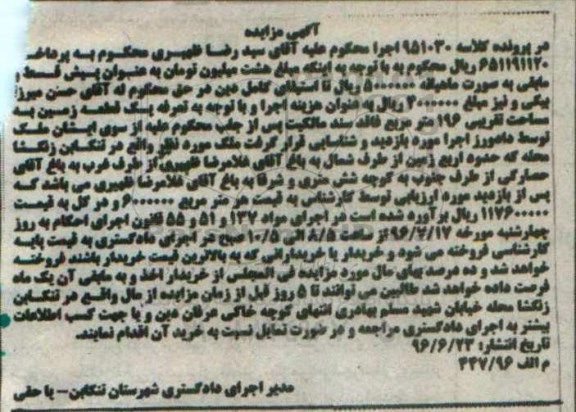 آگهی مزایده
در پرونده کلاسه 951030 اجرا محکوم علیه آقای سید رضا ظهیری محکوم به پرداخت
651191120 ریال محکوم به با توجه به اینکه مبلغ هشت میلیون تومان به عنوان پیش قسط و
مابقی به صورت ماهیانه 5000000 ریال تا استیفای کامل دین در حق محکوم له آقای حسن میرزا
بیگی و نیز مبلغ 2000000 ریال به عنوان هزینه اجرا و با توجه به تعرفه یک قطعه زمین به
مساحت تقریبی 196 متر مربع فاقد سند مالکیت پس از جلب محکوم علیه از سوی ایشان ملک
توسط دادورز اجرا مورد بازدید و شناسایی قرار گرفت ملک مورد نظر واقع در تنکابن زنگشا
محله که حدود اربع زمین از طرف شمال به باغ آقای غلامرضا ظهیری از طرف غرب به باغ آقای
حصارکی از طرف جنوب به کوچه شش متری و شرقا به باغ آقای غلامرضا ظهیری می باشد که
پس از بازدید مورد ارزیابی توسط کارشناس به قیمت هر متر مربع 6000000 و در کل به قیمت
1176000000 ریال برآورده شده است در اجرای مواد 137 و 51 و 55 قانون اجرای احکام به روز
چهارشنبه مورخه 96/7/17 از ساعت 8/5 الی 10/5 صبح در اجرای دادگستری به قیمت پایه
کارشناسی فروخته می شود و خریدار یا خریدارانی که به بالاترین قیمت خریدار باشند فروخته
خواهد شد و ده درصد بهای مال مورد مزایده فی المجلس از خریدار اخذ و به مابقی آن یک ماه
فرصت داده خواهد شد طالبین می توانند تا 5 روز قبل از زمان مزایده از مال واقع در تنکابن
زنگشا محله خیابان شهید مسلم بهادری انتهای کوچه خاکی عرفان دین و یا جهت کسب اطلاعات
بیشتر به اجرای دادگستری مراجعه و در صورت تمایل نسبت به خرید آن اقدام نمایند.
تاریخ انتشار: 96/6/23
م الف 447/96
مدیر اجرای دادگستری شهرستان تنکابن – یا حقی